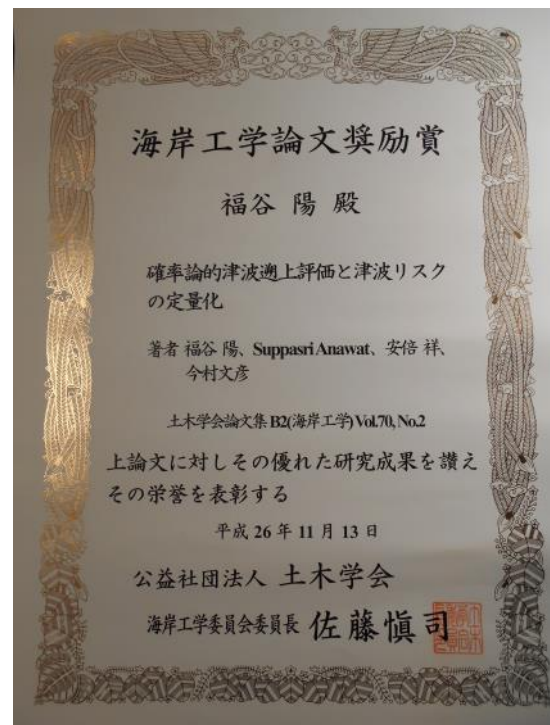 海岸工学論文奨励賞
福谷 陽 殿
確率論的津波遡上評価と津波リスク
の定量化
著者 福谷 陽、Suppasri Anawat、安倍 祥、
今村文彦
土木学会論文集 B2(海岸工学) Vol.70, No.2
上論文に対しその優れた研究成果を讃え
その栄誉を表彰する
平成 26 年 11 月 13 日
公益社団法人 土木学会
海岸工学委員会委員長 佐藤愼司